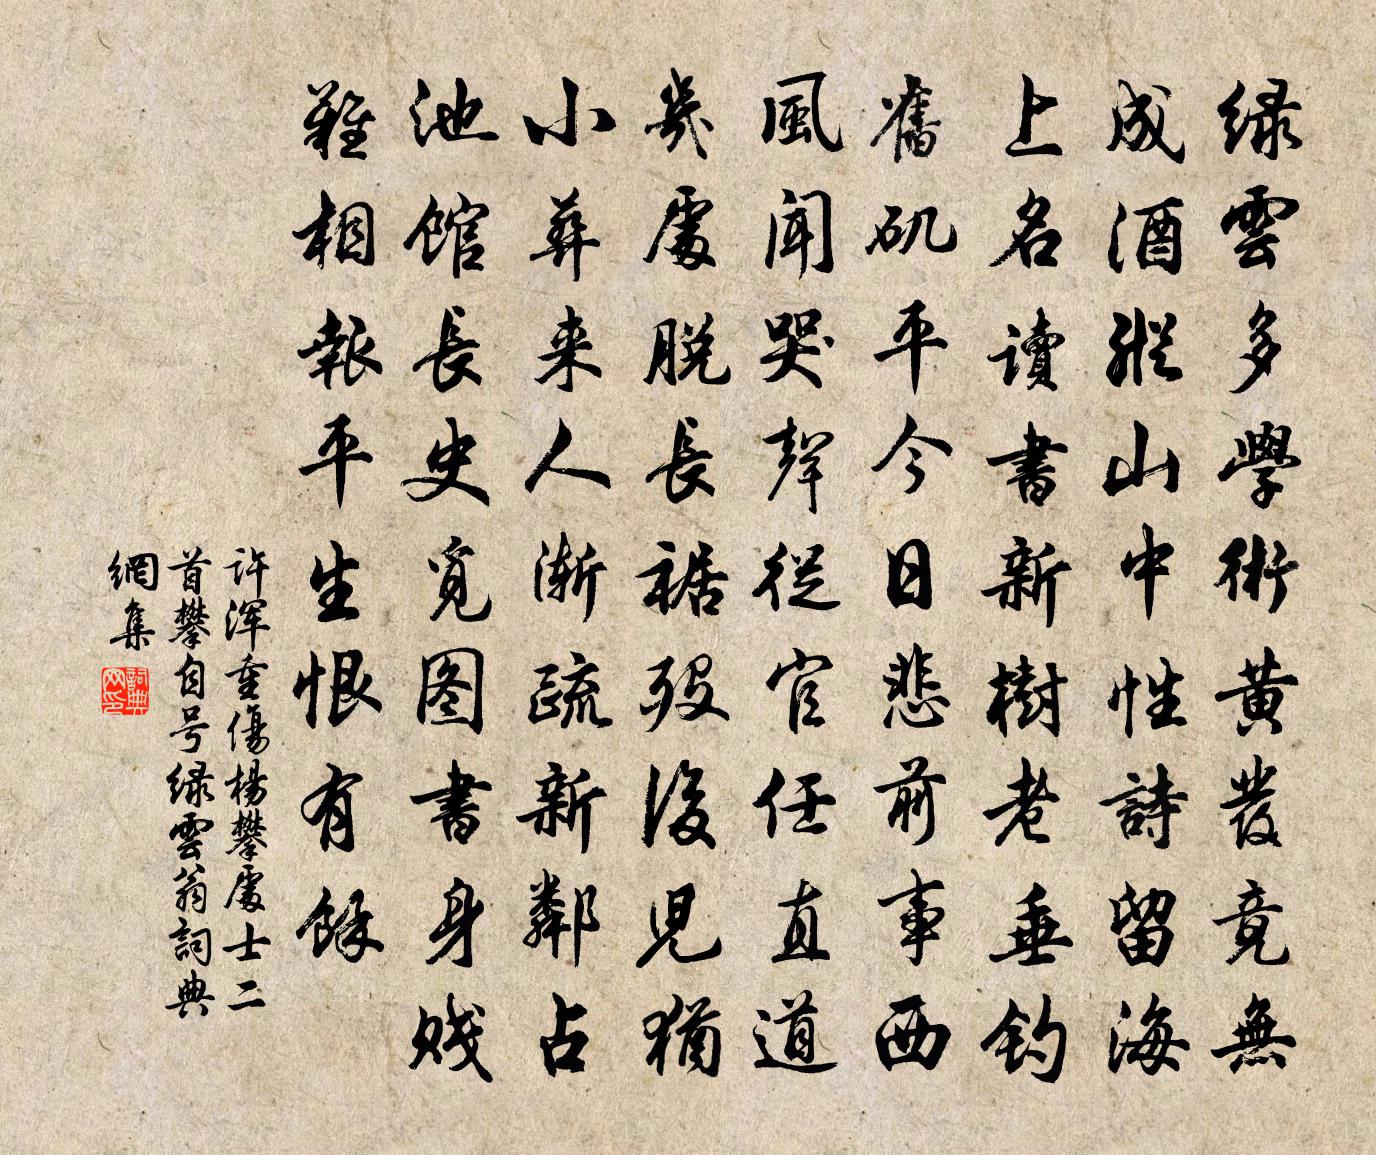 绿雲多學術黄發竟無
成酒縱山中性詩留海
上名讀書新樹老垂釣
舊矶平今日悲前事西
風闻哭聲從官任直道
幾處脱長裾殁後兒猶
小葬来人漸疏新鄰占
池馆長史覓图書身賤
難相報平生恨有餘
许浑重傷楊攀處士二
首攀自号绿雲翁詞典
網集
詞典
网印